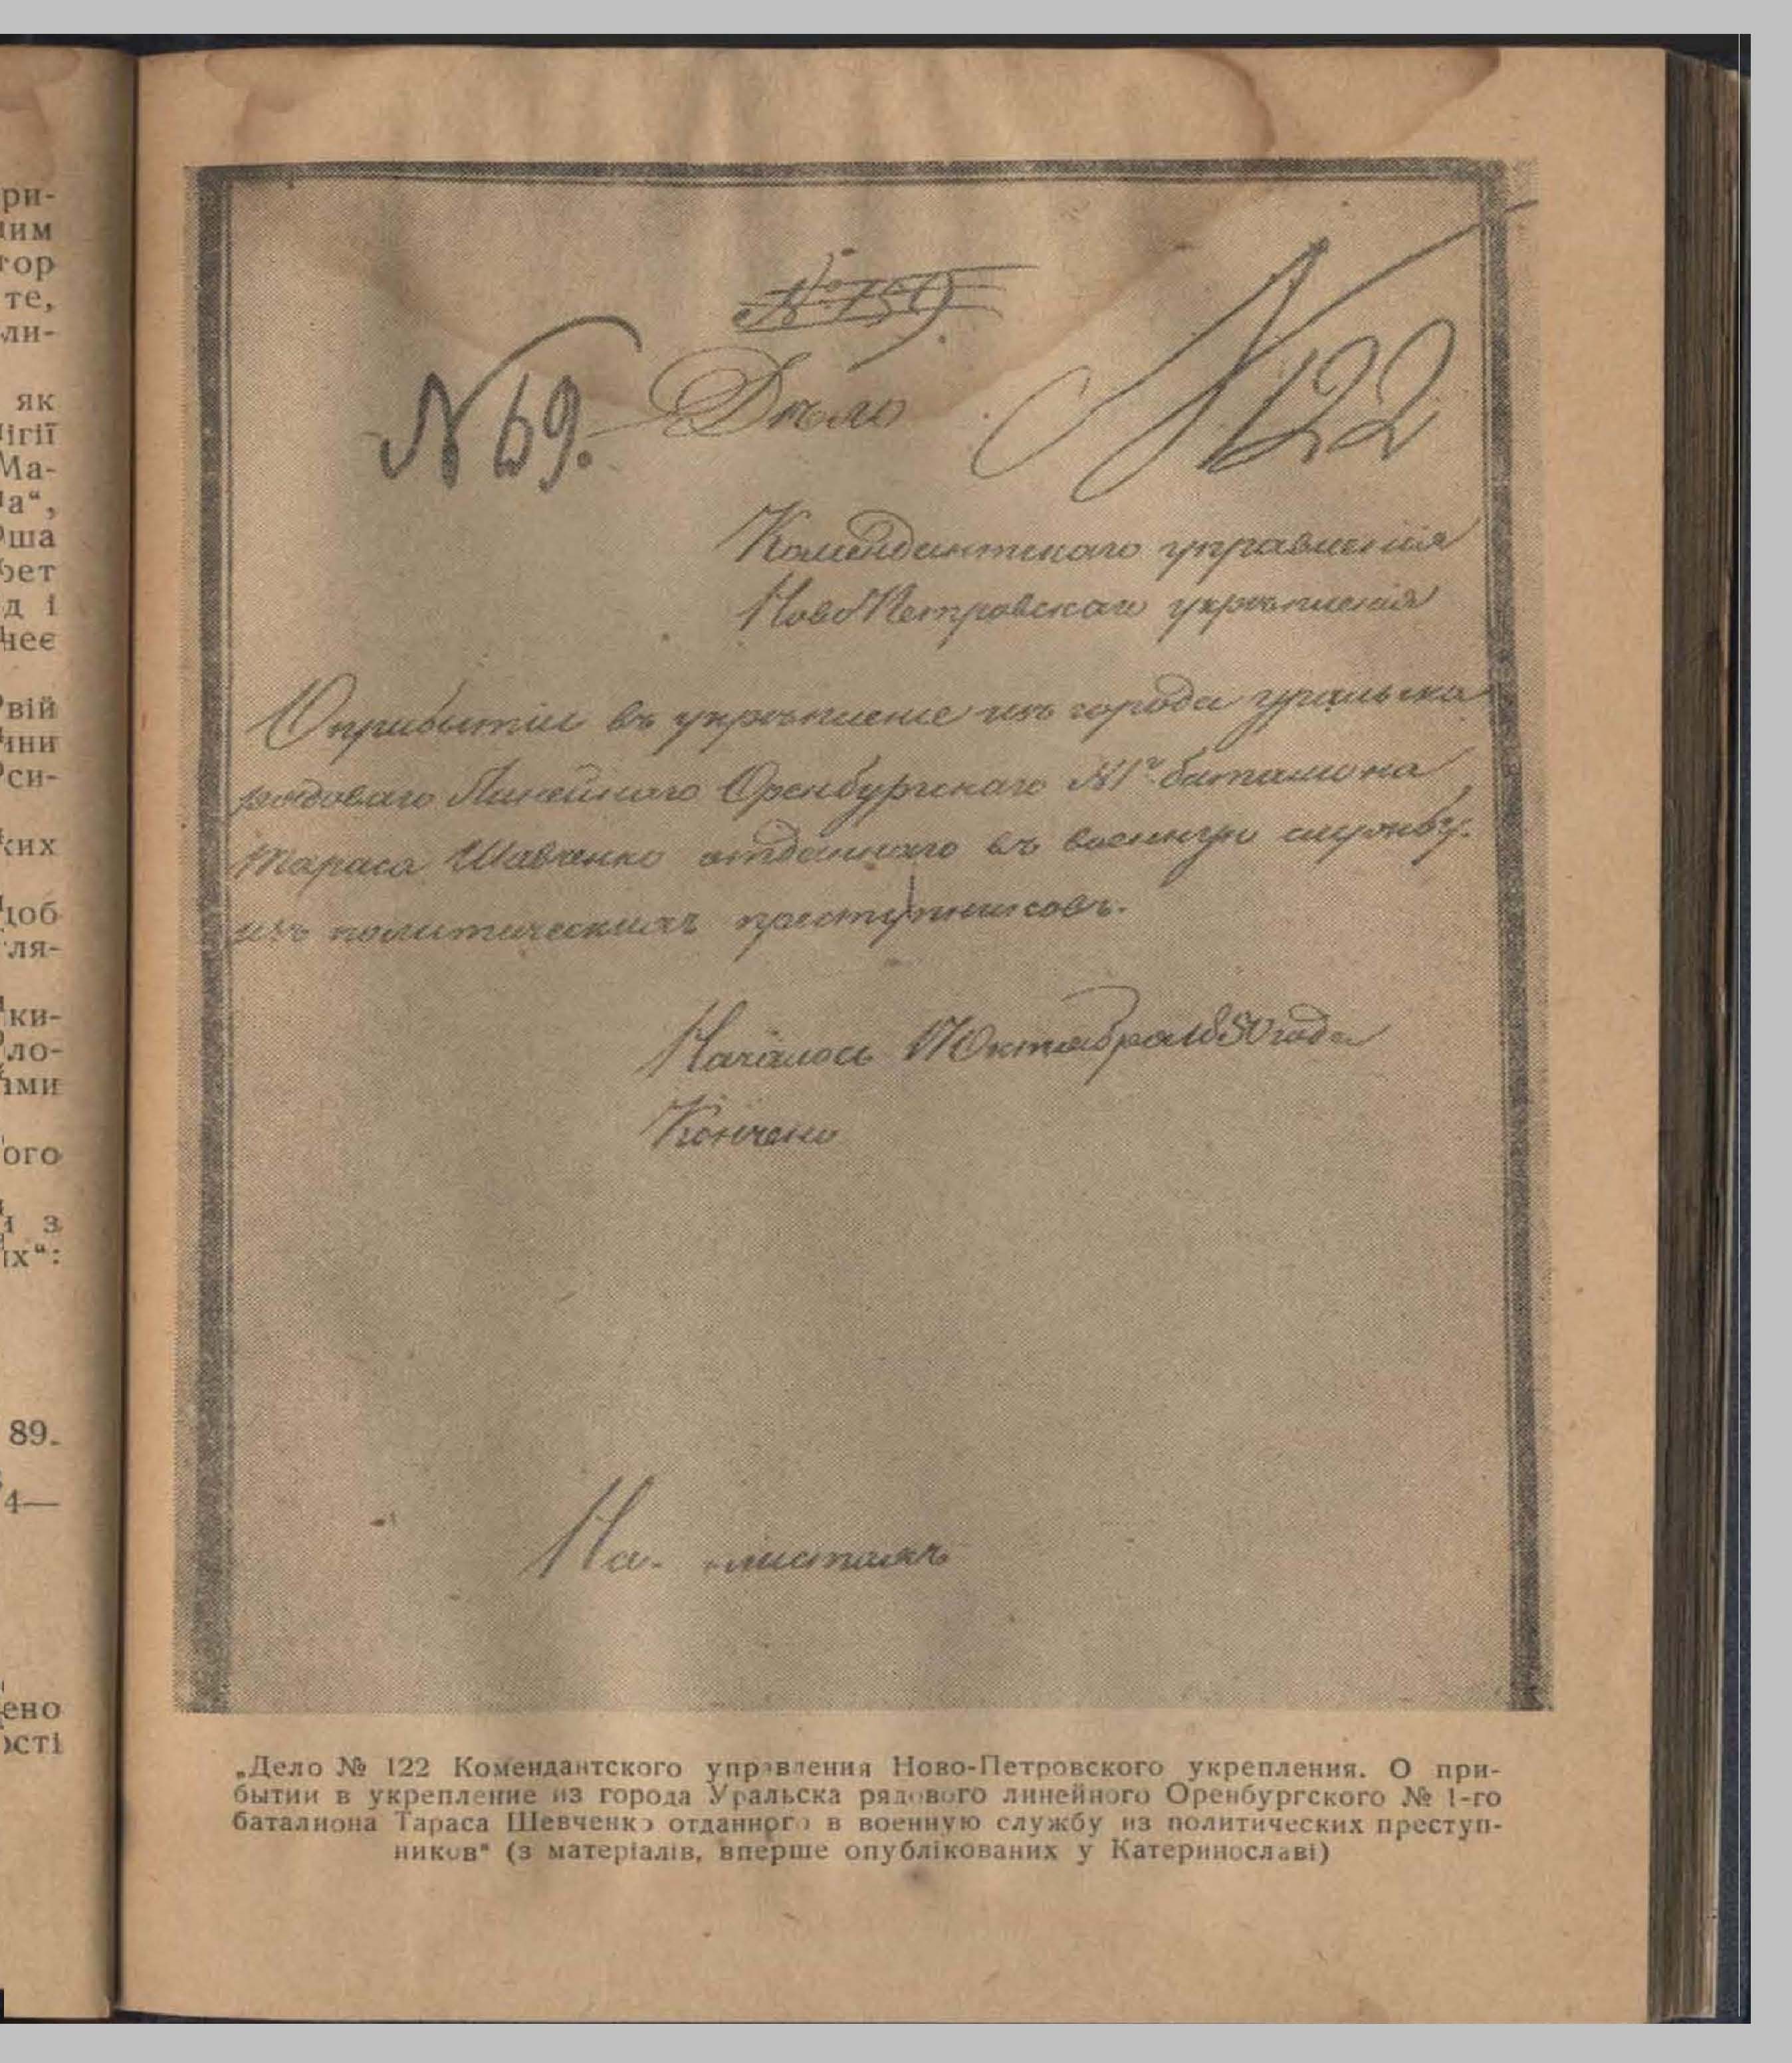 ри-
ним
тор
те,
ли-
як
ігії
Ма-
а“,
ша
рет
д і
неє
вій
ини
си-
ких
доб
гля-
ки-
ло-
ами
ого
з
их“:
89.
4—
ено
ості
№ 151
N 69. Дѣло N 122
Комендантскаго управленія
НовоПетровскаго укрѣпленія
О прибытіи въ укрѣпленіе изъ города уральска
рядоваго Линейнаго Оренбургскаго №1го баталиона
Тараса Шевченко отданнаго въ военную службу
изъ политическихъ преступниковъ.
Началось 17 Октября 1850 года
Кончено
На листахъ
„Дело № 122 Комендантского управления Ново-Петровского укрепления. О при-
бытии в укрепление из города Уральска рядового линейного Оренбургского № 1-го
баталиона Тараса Шевченко отданного в военную службу из политических преступ-
ников“ (з матеріалів, вперше опублікованих у Катеринославі)